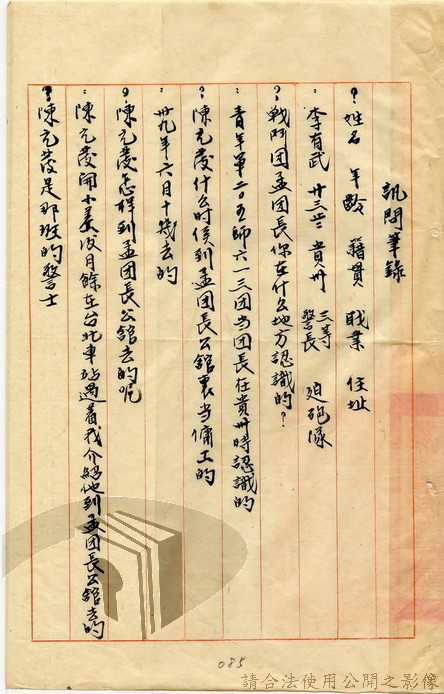 訊問筆錄
？姓名 年齡 籍貫 職業 住址
：李有武 廿三 貴州 三等警長 迫砲隊
？戰鬥团孟团長你在什么地方認識的？
：青年軍二0五師六一三团当团長在貴州時認識的
？陳元發什么时侯到孟团長公館裏当傭工的
：卅九年六月十幾去的
？陳元發怎样到孟团長公舘去的呢
：陳元發開小差後月餘在台北車站遇着我介紹他到孟团長公舘去的
？陳元發是那班的警士
085
請合法使用公開之影像